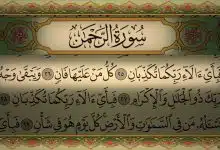 سُورَةُ الرَّحْمَٰن
فَبِأَيِّ ءَالَآءِ رَبِّكُمَا تُكَذِّبَانِ ٢٥ كُلُّ مَنْ عَلَيْهَا فَانٍ ٢٦ وَيَبْقَىٰ وَجْهُ
ذُو الْجَلَٰلِ وَالْإِكْرَامِ ٢٧ فَبِأَيِّ ءَالَآءِ رَبِّكُمَا تُكَذِّبَانِ
مَن فِي السَّمَٰوَٰتِ وَالْأَرْضِ كُلَّ يَوْمٍ هُوَ فِي شَأْنٍ ٢٩ فَبِأَيِّ